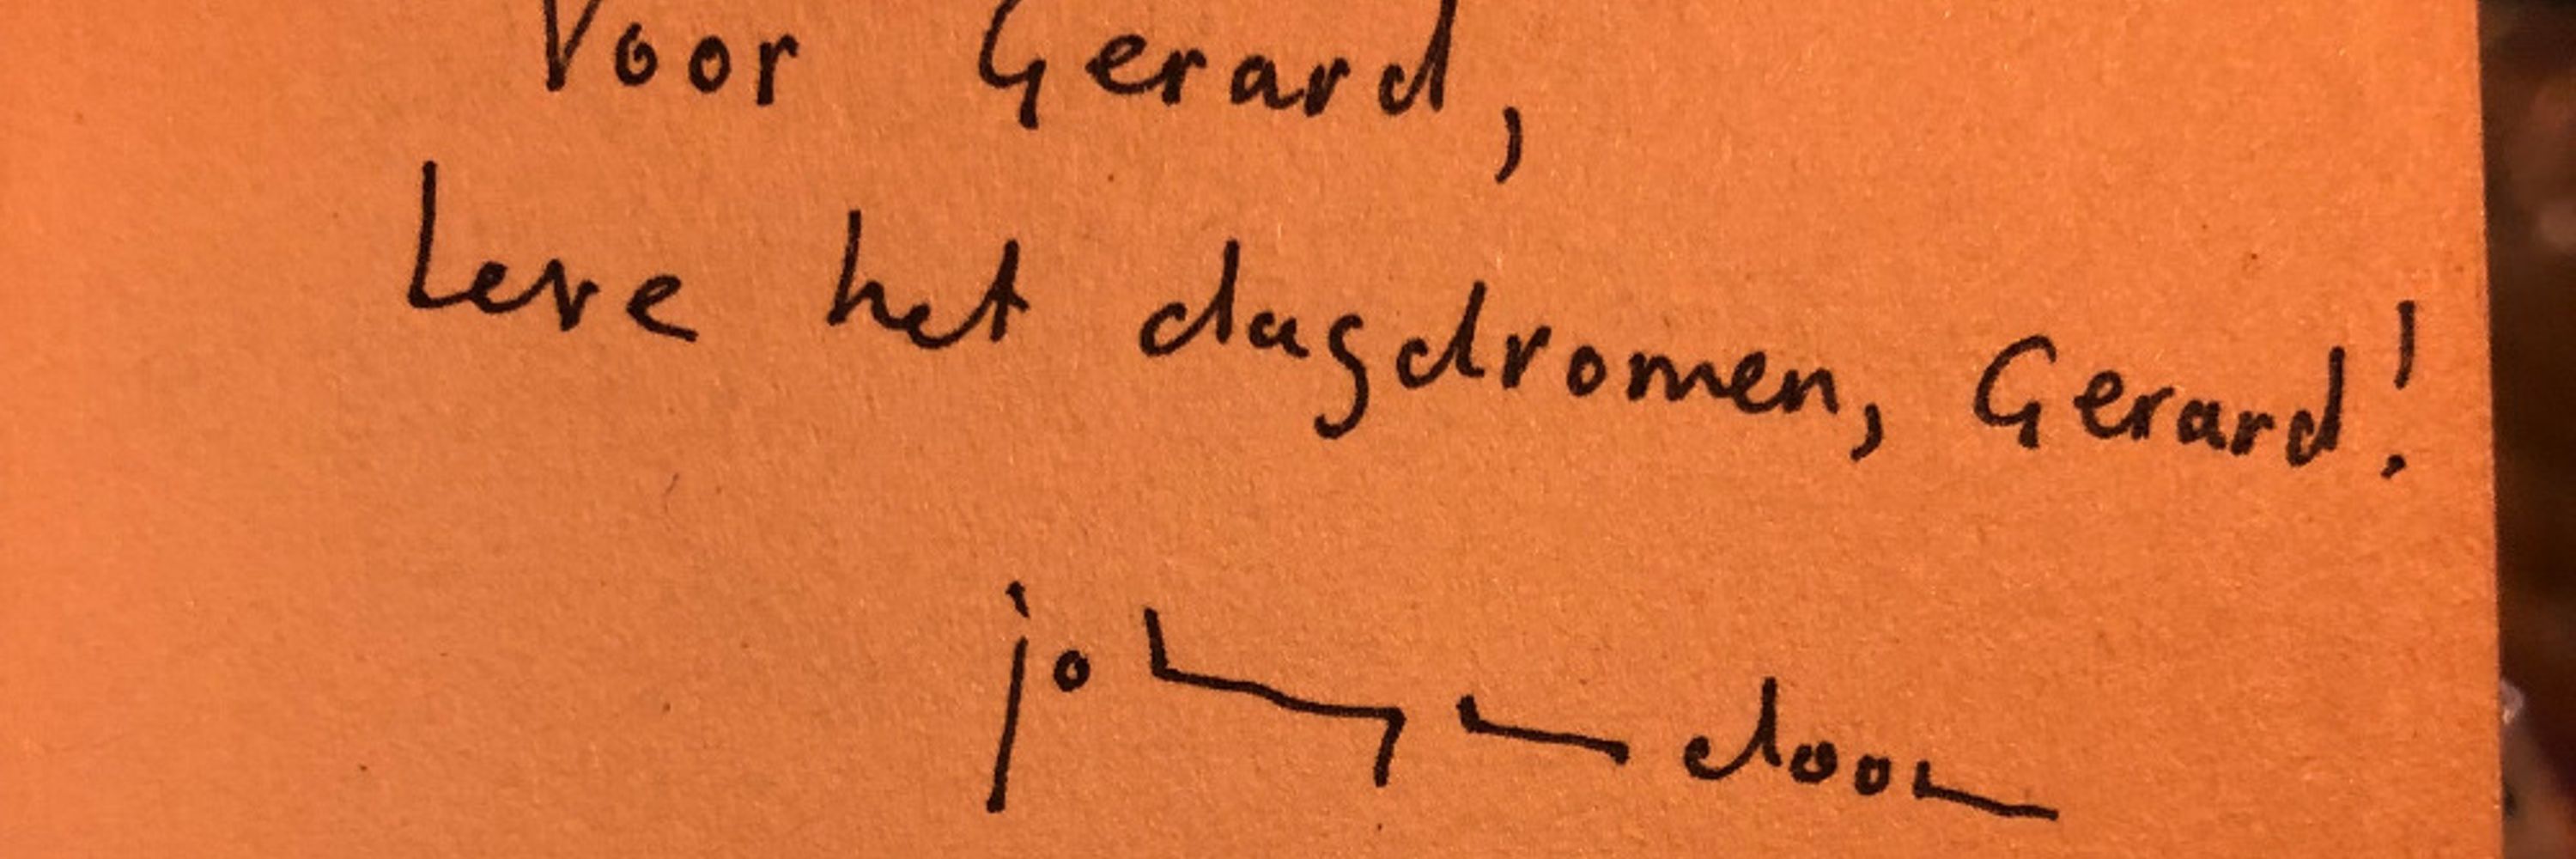 Voor Gerard,
Leve het dagdromen, Gerard!
johnny van doorn